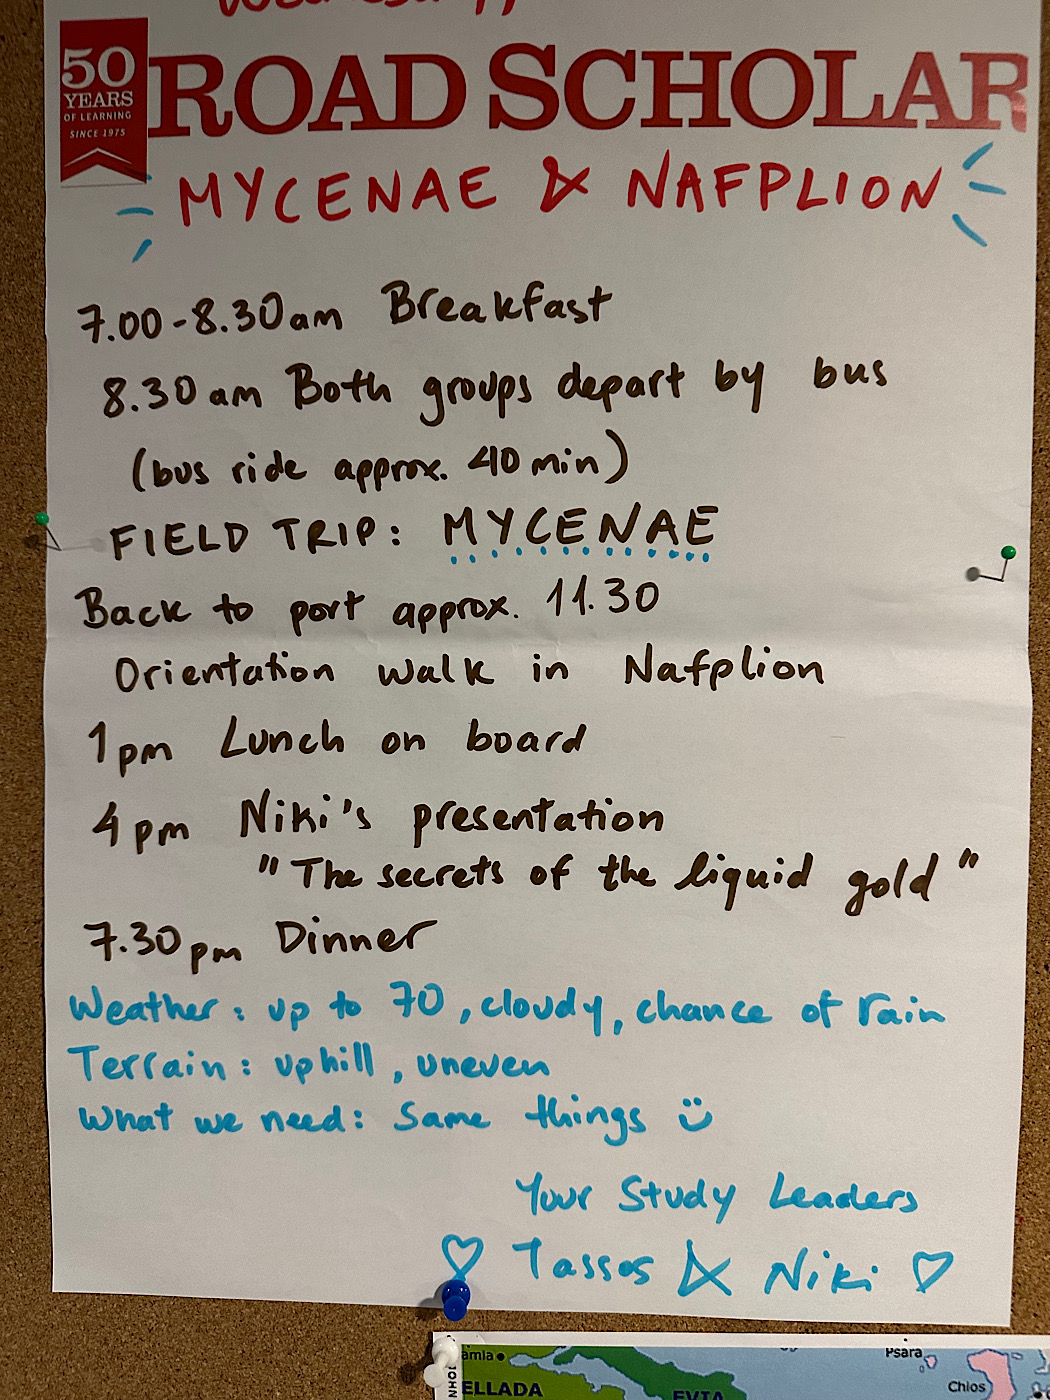 50
YEARS
OF LEARNING
SINCE 1975
ROAD SCHOLAR
MYCENAE & NAFPLION
7.00-8.30am Breakfast
8.30am Both groups depart by bus
(bus ride approx. 40 min)
FIELD TRIP: MYCENAE
Back to port approx. 11.30
Orientation walk in Nafplion
1pm Lunch on board
4pm Niki's presentation
"The secrets of the liquid gold"
7.30pm Dinner
Weather: up to 70, cloudy, chance of rain
Terrain: uphill, uneven
What we need: Same things
Your Study Leaders
♡ Tassos & Niki ♡
amia
Psara
Chios
ELLADA
EVIA